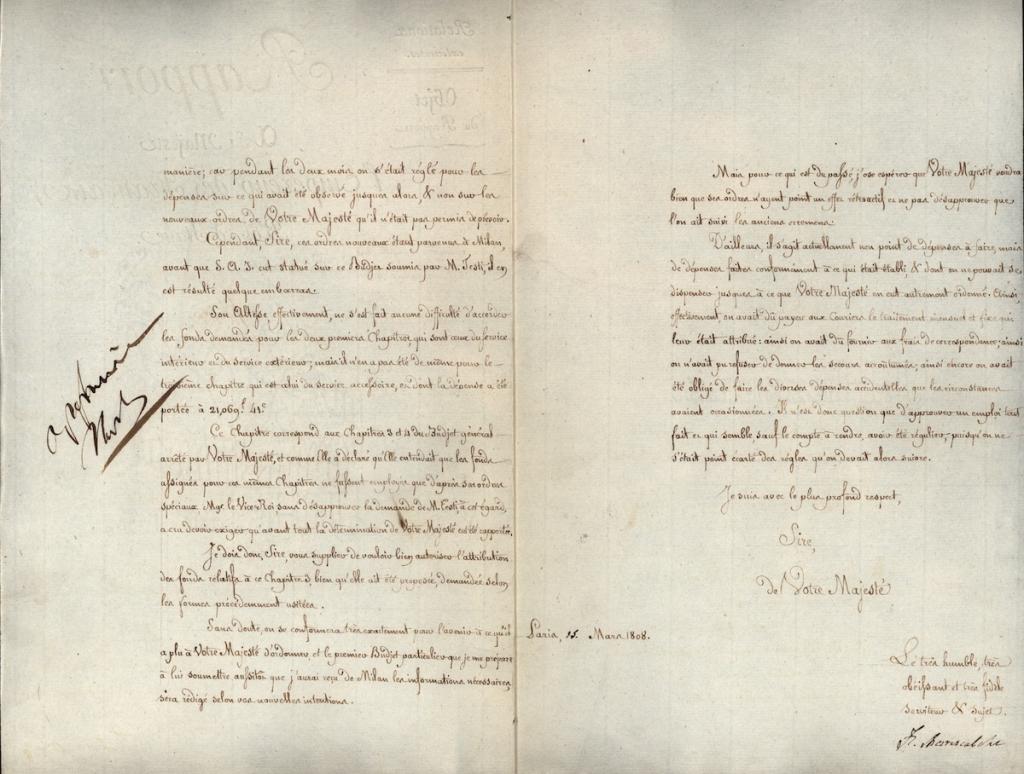 manière; car pendant les deux mois on s'était réglé pour les
dépenses sur ce qui avait été observé jusques alors & non sur les
nouveaux ordres de Votre Majesté qu'il n'était pas permis de prévoir.
Cependant, Sire, ces ordres nouveaux étant parvenus à Milan,
avant que S. A. I. eut statué sur ce Budjet soumis par M. Testi, il en
est résulté quelque embarras.
Son Altesse effectivement, ne s'est fait aucune difficulté d'accorder
les fonds demandés pour les deux premiers Chapitres, qui sont ceux du service
intérieur et du service extérieur; mais il n'en a pas été de même pour le
troisième chapitre qui est celui du service accessoire, et dont la dépense a été
portée à 21,069.41.
Ce Chapitre correspond aux Chapitres 3 et 4 du Budjet général
arrêté par Votre Majesté, et comme Elle a déclaré qu'Elle entendait que les fonds
assignés pour ces mêmes Chapitres ne fussent employés que d'après ses ordres
spéciaux Mgr le Vice-Roi sans désapprouver la demande de M. Testi à cet égard,
a cru devoir exiger qu'avant tout la détermination de Votre Majesté eut été apportée.
Je dois donc, Sire, vous supplier de vouloir bien autoriser l'attribution
des fonds relatifs à ce Chapitre 3, bien qu'elle ait été proposée, demandée selon
les formes précédemment usitées.
Sans doute, on se conformera très exactement pour l'avenir à ce qu'il
a plu à Votre Majesté d'ordonner, et le premier Budjet particulier que je me prépare
à lui soumettre aussitôt que j'aurai reçu de Milan les informations nécessaires,
sera rédigé selon vos nouvelles intentions.
Mais pour ce qui est du passé, j'ose espérer que Votre Majesté voudra
bien que ses ordres n'ayent point un effet rétroactif et ne pas désapprouver que
l'on ait suivi les anciens erremens.
D'ailleurs, il s'agit actuellement non point de dépenses à faire, mais
de dépenses faites conformément à ce qui était établi & dont on ne pouvait se
dispenser jusques à ce que Votre Majesté en eut autrement ordonné. Ainsi
effectivement on avait dû payer aux Couriers le traitement mensuel et fixe qui
leur était attribué: ainsi on avait dû fournir aux frais de correspondance; ainsi
on n'avait pu refuser de donner les secours accoutumés; ainsi encore on avait
été obligé de faire les diverses dépenses accidentelles que les circonstances
avaient occasionnées. Il n'est donc question que d'approuver un emploi tout
fait et qui semble, sauf le compte à rendre, avoir été régulier, puisqu'on ne
s'était point écarté des règles qu'on devait alors suivre.
Je suis avec le plus profond respect,
Sire,
de Votre Majesté
Paris, 15. Mars 1808.
Le très humble, très
obéissant et très fidèle
serviteur & sujet.
F. Marescalchi